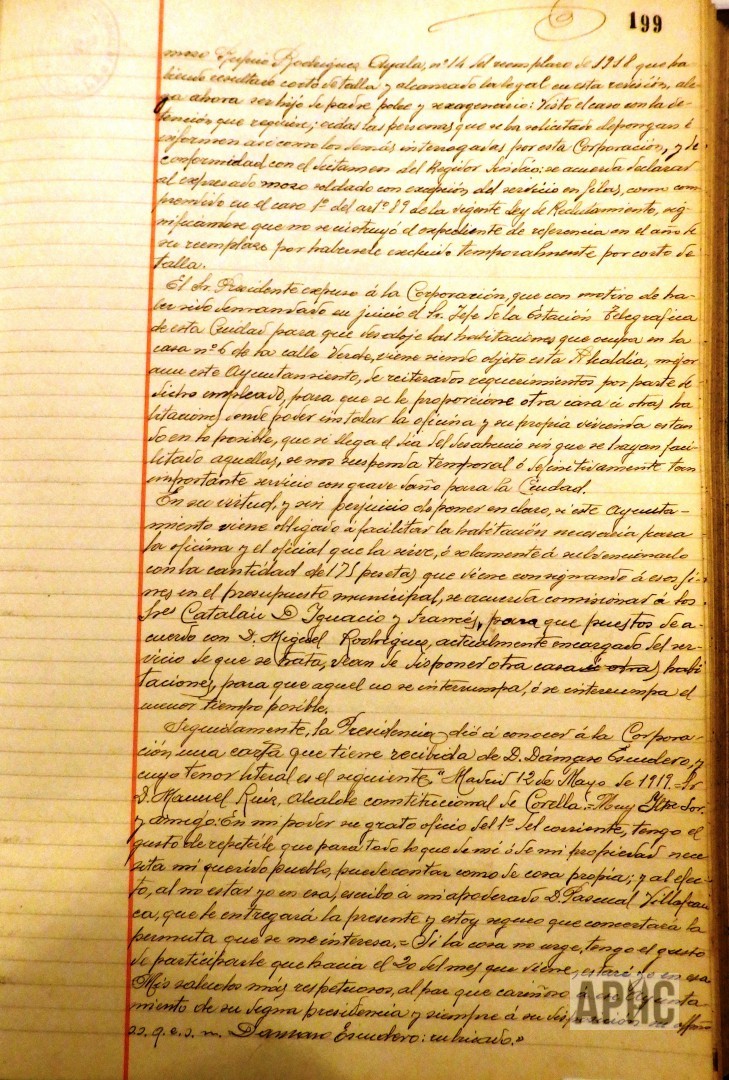 199
mozo Rodriguez Ayala, nº 14 del reemplazo de 1918 que ha-
biendo resultado corto de talla y alcanzado la legal en esta revisión, ale-
ga ahora ser hijo de padre pobre y sexagenario: Visto el caso con la de-
tención que requiere; oidas las personas que se ha solicitado depongan é
informen así como los demás interrogados por esta Corporación, y de
conformidad con el dictamen del Regidor Sindico; se acuerda declarar
al expresado mozo soldado con excepción del servicio en filas, como com-
prendido en el caso 1º del artº 89 de la vigente ley de Reclutamiento, sig-
nificándose que no se instruyó el expediente de referencia en el año de
su reemplazo por habersele excluido temporalmente por corto de
talla.
El Sr. Presidente expuso á la Corporación, que con motivo de ha-
ber sido demandado en juicio el Sr. Jefe de la Estación telegrafica
de esta Ciudad para que desaloje las habitaciones que ocupa en la
casa nº 6 de la calle Verde, viene siendo objeto esta Alcaldía, mejor
aun este Ayuntamiento, de reiterados requerimientos por parte de
dicho empleado, para que se le proporcione otra casa ú otras ha-
bitaciones donde poder instalar la oficina y su propia vivienda estan-
do en lo posible, que si llega el dia del desahucio sin que se hayan faci-
litado aquellas, se nos suspenda temporal ó definitivamente tan
importante servicio con grave daño para la Ciudad.
En su virtud, y sin perjuicio de poner en claro, si este Ayunta-
miento viene obligado á facilitar la habitación necesaria para
la oficina y el oficial que la sirve, ó solamente á subvencionarlo
con la cantidad de 175 pesetas que viene consignando á esos fi-
nes en el presupuesto municipal, se acuerda comisionar á los
Sres Catalán D. Ignacio y Francés, para que puestos de a-
cuerdo con D. Miguel Rodriguez, actualmente encargado del ser-
vicio de que se trata, vean de disponer otra casa ú otras habi-
taciones, para que aquel no se interrumpa, ó se interrumpa el
menor tiempo posible.
Seguidamente, la Presidencia dió á conocer á la Corpora-
ción una carta que tiene recibida de D. Dámaso Escudero, y
cuyo tenor literal es el siguiente, "Madrid 12 de Mayo de 1919.= Sr
D. Manuel Ruiz, Alcalde constitucional de Corella.= Muy Iltre Sor.
y amigo: En mi poder su grato oficio del 1º del corriente, tengo el
gusto de repetirle que para todo lo que de mí ó de mi propiedad nece
sita mi querido pueblo, puede contar como de cosa propia; y al efec-
to, al no estar yo en esa, escribo á mi apoderado D. Pascual Villafran-
ca, que le entregará la presente y estoy seguro que concertará la
permuta que se me interesa.= Si la cosa no urge, tengo el gusto
de participarle que hacia el 20 del mes que viene, estaré yo en esa
Mis saludos más respetuosos, al par que cariñosos á ese Ayunta
miento de su digna presidencia y siempre á su disposición su affmo
s.s. q. e. s. m. Damaso Escudero: rubricado."
АРИС